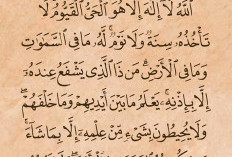 ٱللَّهُ لَآ إِلَٰهَ إِلَّا هُوَ ٱلْحَىُّ ٱلْقَيُّومُ لَا
تَأْخُذُهُۥ سِنَةٌ وَلَا نَوْمٌ لَّهُۥ مَا فِى ٱلسَّمَٰوَٰتِ
وَمَا فِى ٱلْأَرْضِ مَن ذَا ٱلَّذِى يَشْفَعُ عِندَهُۥٓ
إِلَّا بِإِذْنِهِۦ يَعْلَمُ مَا بَيْنَ أَيْدِيهِمْ وَمَا خَلْفَهُمْ
وَلَا يُحِيطُونَ بِشَىْءٍ مِّنْ عِلْمِهِۦٓ إِلَّا بِمَا شَآءَ